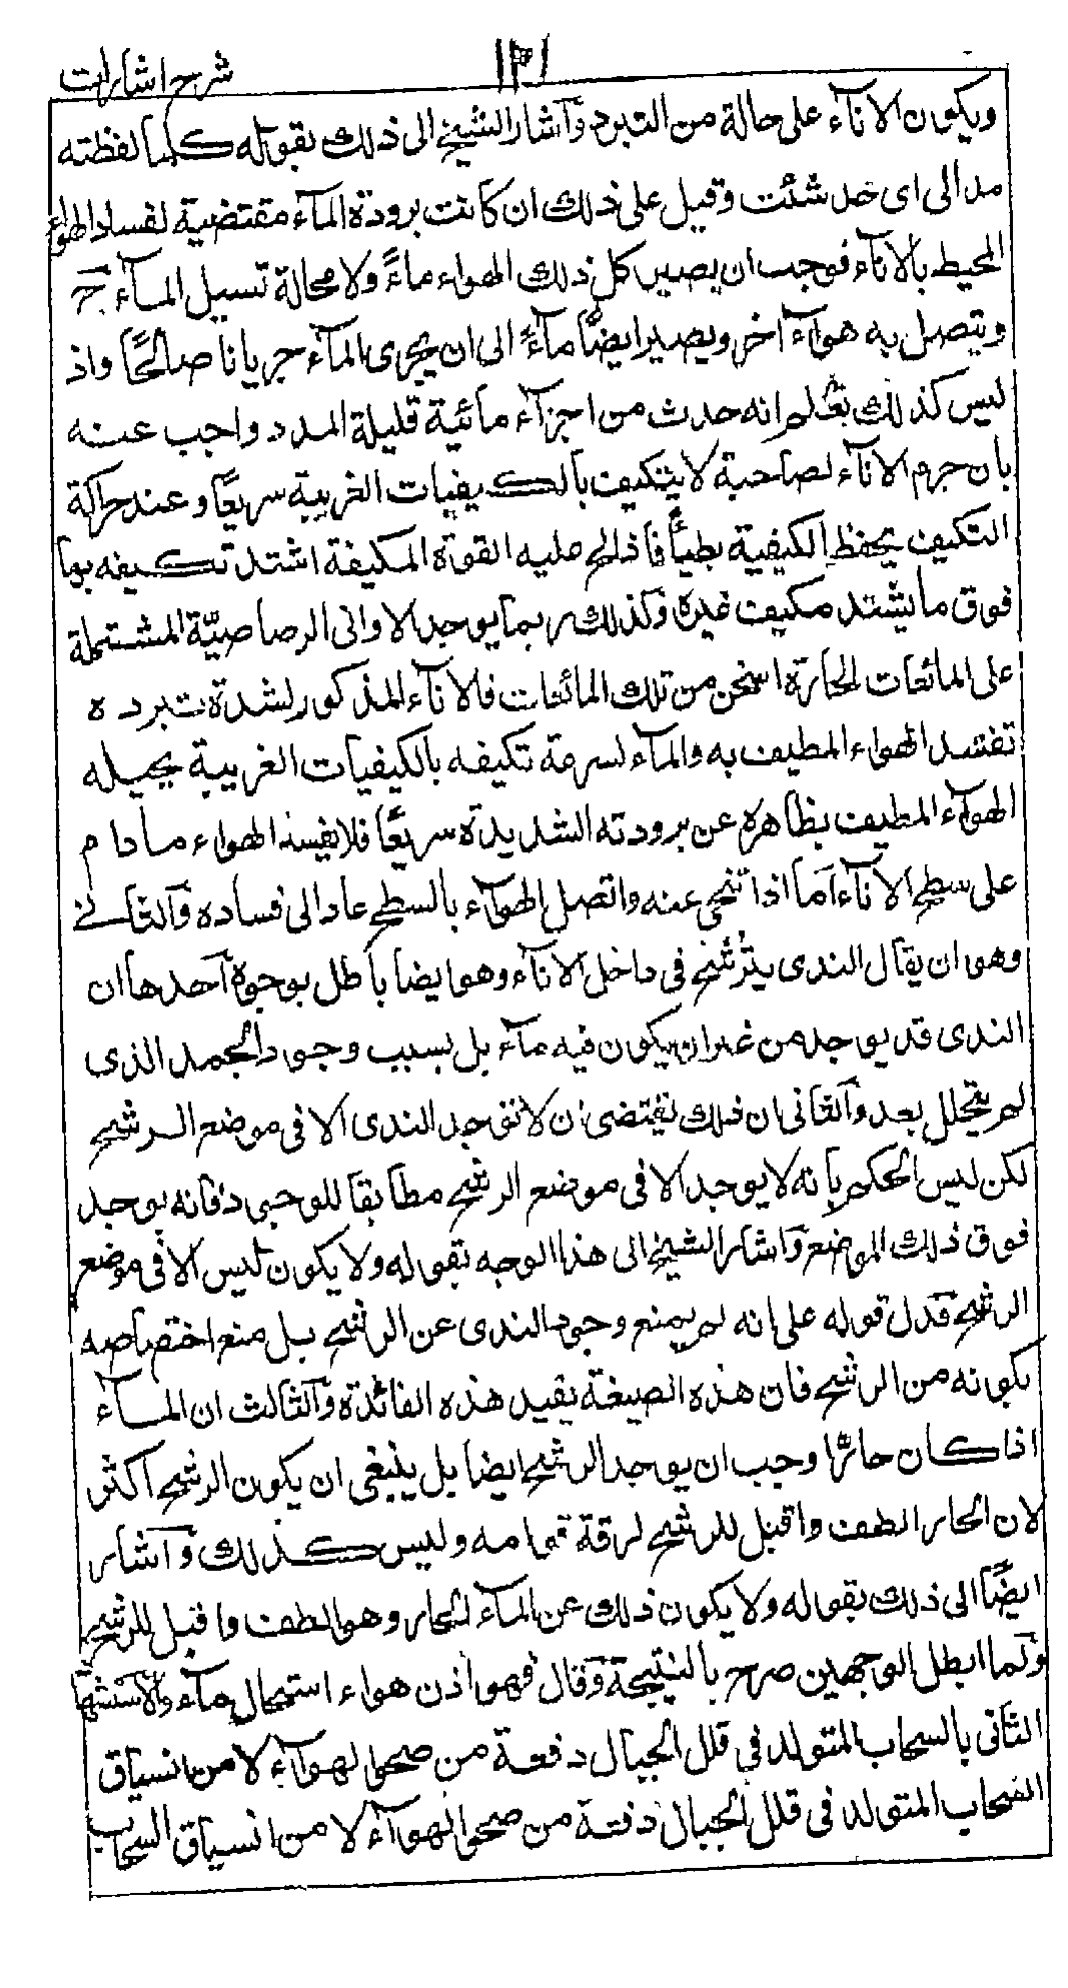 شرح اشارات
١٣١
ويكون الاناۤء على حالة من التبرد وآشار الشيخ الى ذلك بقوله كلما لفظته
مد الى اى حد شئت وقيل على ذلك ان كانت برودة الماۤء مقتضية لفساد الهواء
المحيط بالاناۤء فوجب ان يصير كل ذلك الهواء ماءً ولا محالة تسيل الماۤء ح
ويتصل به هواۤء اخر ويصير ايضًا ماۤءً الى ان يجرى الماۤء جريانا صالحًا واذ
ليس كذلك تعلم انه حدث من اجزاۤء مائية قليلة المدد واجب عنه
بان جرم الاناۤء لصلابته لا يتكيف بالكيفيات الغريبة سريعًا وعند
التكيف يحفظ الكيفية بطيأً فاذا الح عليه القوة المكيفة اشتد تكيفه بها
فوق ما يشتد مكيف غيره وكذلك ربما يوجد الاوانى الرصاصيّة المشتملة
على المائعات الحارة اسخن من تلك المائعات فالاناۤء المذكور لشدة تبرده
تفسد الهواء المطيف به والماۤء لسرعة تكيفه بالكيفيات الغريبة يحيله
الهواۤء المطيف بظاهره عن برودته الشديدة سريعًا فلا يفسد الهواء ما دام
على سطح الاناۤء اما اذا تنحى عنه واتصل الهواۤء بالسطح عاد الى فساده وآلثانى
وهو ان يقال الندى يترشح فى داخل الاناۤء وهو ايضا باطل بوجوه آحدها ان
الندى قد يوجد من غير ان يكون فيه ماۤء بل بسبب وجود الجمد الذى
لم يتحلل بعد وآلثانى ان ذلك يقتضى ان لا توجد الندى الا فى موضع الرشح
لكن ليس الحكم بانه لا يوجد الا فى موضع الرشح مطابقا للوجود فانه يوجد
فوق ذلك الموضع وآشار الشيخ الى هذا الوجه بقوله ولا يكون ليس الا فى موضع
الرشح فدل قوله على انه لم يمنع وجود الندى عن الرشح بل منع اختصاصه
بكونه من الرشح فان هذه الصيغة يفيد هذه الفائدة وآلثالث ان الماۤء
اذا كان حارًا وجب ان يوجد الرشح ايضا بل ينبغى ان يكون الرشح اكثر
لان الحار الطف واقبل للرشح لرقة قوامه وليس كذلك وآشار
ايضًا الى ذلك بقوله ولا يكون ذلك عن الماۤء الحار وهو الطف واقبل للرشح
ولما ابطل الوجهين صرح بالنتيجة وقال فهو اذن هواء استحال ماۤء والاستشهاد
الثانى بالسحاب المتولد فى قلل الجبال دفعة من صحو الهواۤء لا من انسياق
السحاب المتولد فى قلل الجبال دفعة من صحو الهواۤء لا من انسياق السحاب